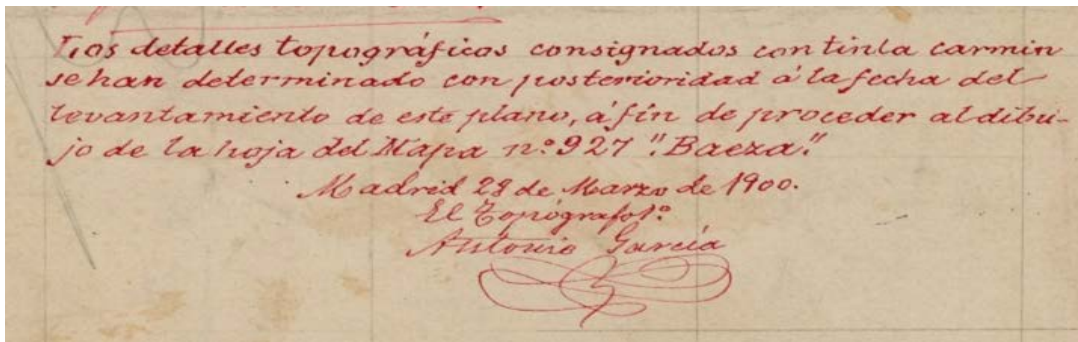 Los detalles topográficos consignados con tinta carmin
se han determinado con posterioridad á la fecha del
levantamiento de este plano, á fín de proceder al dibu-
jo de la hoja del Mapa nº 927 "Baeza."
Madrid 28 de Marzo de 1900.
El Topógrafo 1º
Antonio García